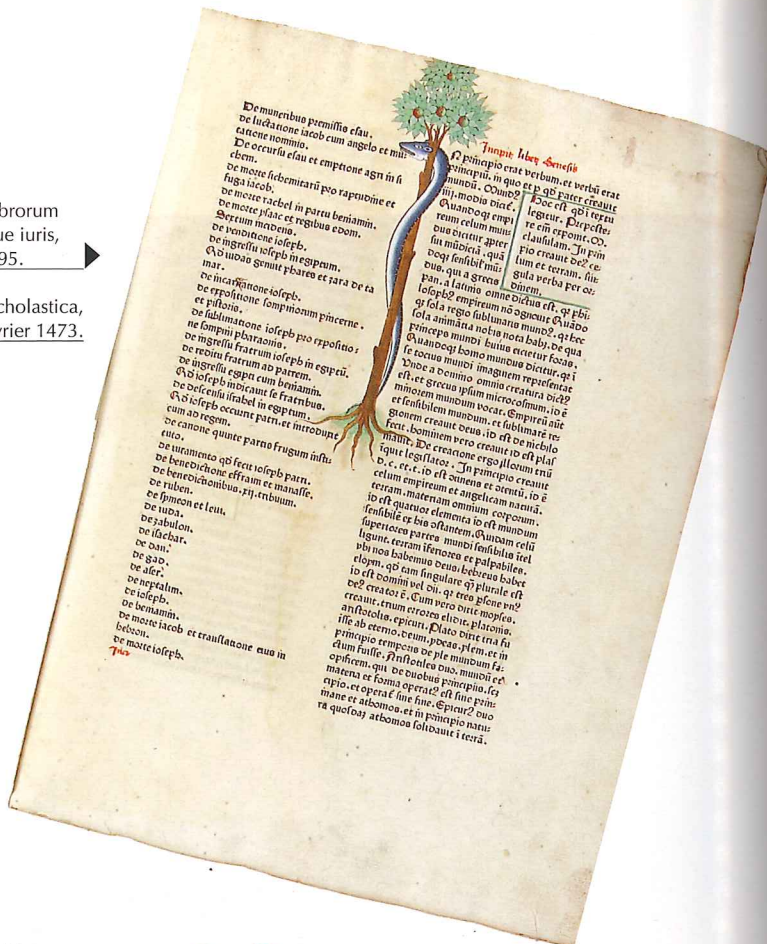 brorum
ue iuris,
95.
cholastica,
vrier 1473.
De muneribus premissis esau.
de luctatione iacob cum angelo et mu
tatione nominis.
De occursu esau et emptione agri in si
chem.
de morte sichemitarū pro raptu dine et
fuga iacob.
de morte rachel in partu beniamin.
de morte ysaac et regibus edom.
Sextum incidens.
de venditione ioseph.
de ingressu ioseph in egiptum.
Qđ iudas genuit phares et zara de ta
mar.
de incarcatione ioseph.
de expositione sompniorum pincerne
et pistoris.
de sublimatione ioseph pro expositio
ne sompni pharaonis.
de ingressu fratrum ioseph in egiptū.
de reditu fratrum ad patrem.
de ingressu egipti cum beniamin.
Qđ ioseph indicauit se fratribus.
de descensu israhel in egiptum.
Qđ ioseph occurrit patri, et introduxit
eum ad regem.
de canone quinte partis frugum insti
tuto.
de iuramento qđ fecit ioseph patri.
de benedictione effraim et manasse.
de benedictionibus .xij. tribuum.
de ruben.
de symeon et leui.
de iuda.
de zabulon.
de isachar.
de dan.
de gad.
de aser.
de neptalim.
de ioseph.
de beniamin.
de morte iacob et translatione eius in
hebron.
de morte ioseph.
Incipit liber Genesis
N principio erat verbum. et verbū erat
principiū. in quo et p qđ pater creauit
mundū. Mundꝯ
iiij. modis dicit̄.
Quandoqꝫ empi
reum celum mun
dus dicitur
doqꝫ sensibil mū
dus. qui a grecis
pan. a latinis omne dictus est. qꝛ phi
losophꝯ empireum nō ognouit Quādo
qꝫ sola regio sublunaris mundꝯ. qꝛ hec
sola animātia nobis nota habꝫ. de qua
princeps mundi huius eicietur foras.
Quandoqꝫ homo mundus dicitur. qꝛ ī
se totius mundi imaginem representat
Vnde a domino omnis creatura dictꝯ
est. et grecus ipsum microcosmum. id ē
minorem mundum vocat. Empireū aūt
et sensibilem mundum. et sublunarē re
gionem creauit deus. id est de nichilo
fecit. hominem vero creauit id est plas
mauit. De creatione ergo illorum triū
iquit legislator. In principio creauit
d. c. et. t. id est otinens et otentū. id ē
celum empireum et angelicam naturā.
terram. materiam omnium corporum.
id est quatuor elementa id est mundum
sensibilē ex his ostantem. Quidam celū
superiores partes mundi sensibilis itel
ligunt. terram iferiores et palpabiles.
vbi nos habemus deus. hebreus habet
eloym. qđ tam singulare qꝫ plurale est
id est domini vel dii. qꝛ tres psone vnꝯ
deꝯ creator ē. Cum vero dixit moyses.
creauit. trium errores elidit. platonis.
aristotolis. epicuri. Plato dixit tria fu
isse ab eterno. deum. ydeas. ylem. et in
principio temporis de yle mundum fa
ctum fuisse. Aristotiles duo. mundū et
opificem. qui de duobus principiis. scꝫ
materia et forma operatꝯ est sine prin
cipio. et operat̄ sine fine. Epicurꝯ duo
inane et athomos. et in principio natu
ra quosdaꝫ athomos solidauit ī terrā.
Hoc est qđ ī textu
legitur. Preposte
re eī exponit. M.
clausulam. In prin
pio creauit deꝯ ce
lum et terram. sin
gula verba per or
dinem.